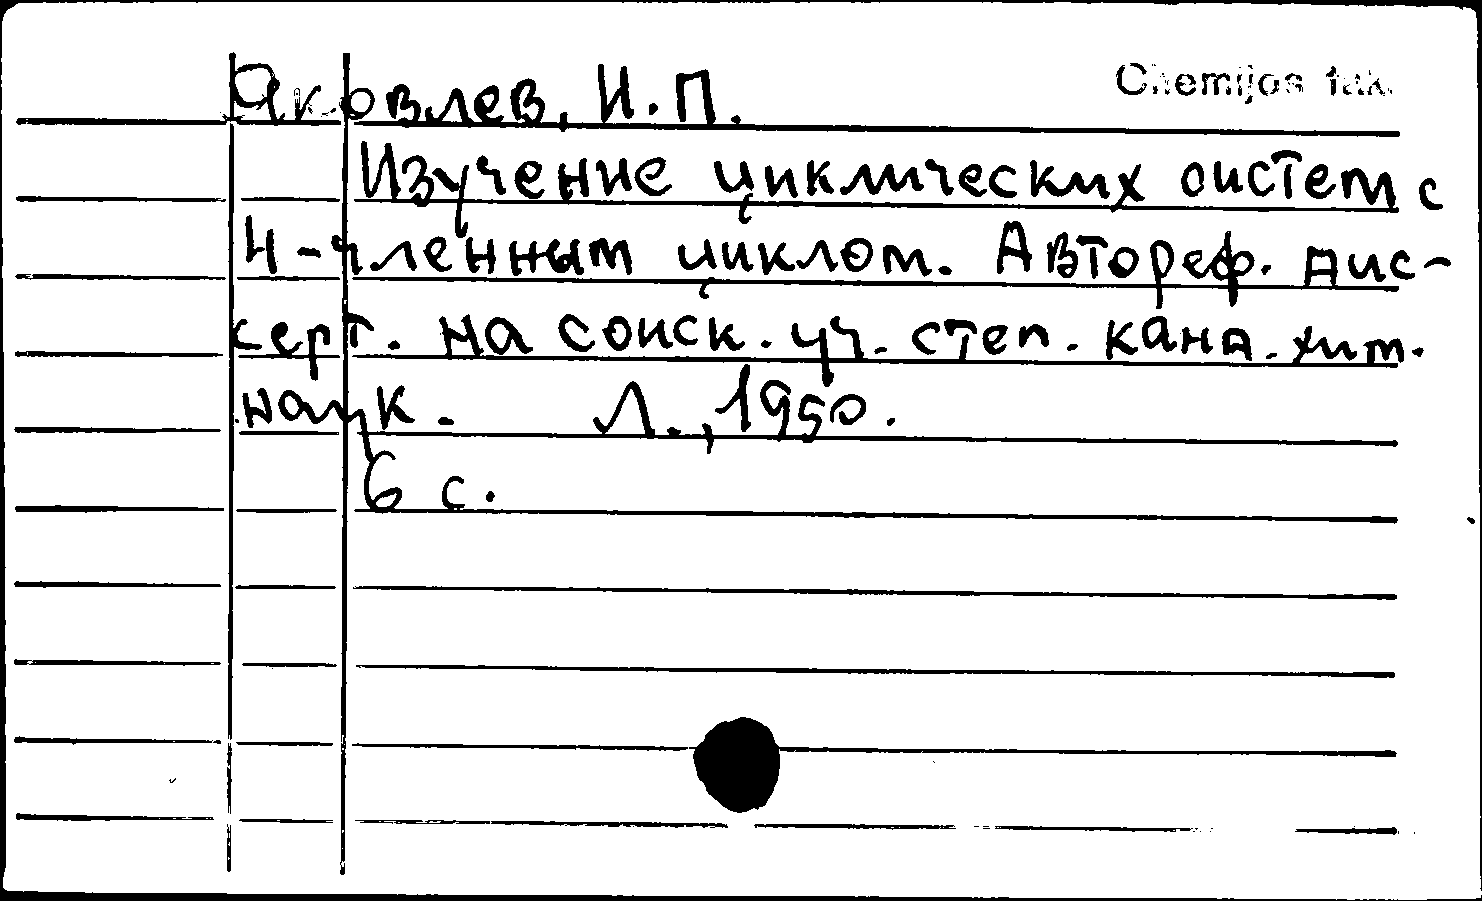 Яковлев, И.П.
Chemijos fak.
Изучение циклических систем с
4-членным циклом. Автореф. дис-
серт. на соиск. уч. степ. канд. хим.
наук. Л., 1950.
6 с.